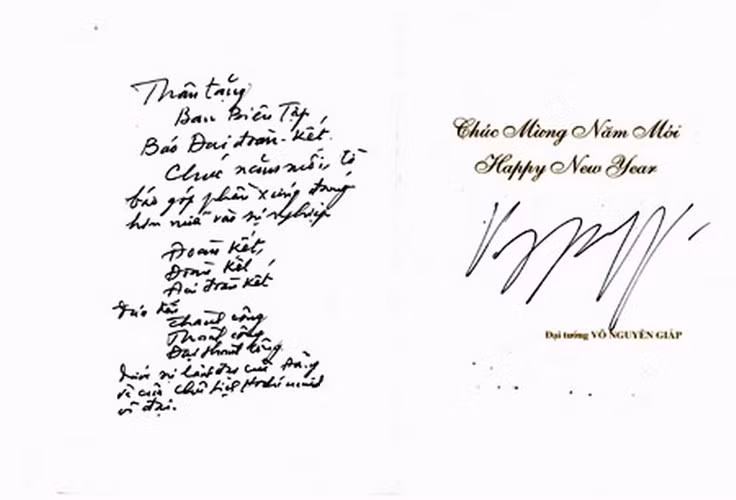 Thân tặng
Ban Biên Tập,
Báo Đại đoàn-Kết.
Chúc năm mới, tờ
báo góp phần xứng đáng
hơn nữa vào sự nghiệp
Đoàn Kết,
Đoàn Kết,
Đại đoàn Kết
Thành công
Thành công
Đại thành công
dưới sự lãnh đạo của Đảng
và của Chủ tịch Hồ Chí Minh
vĩ đại.
Chúc Mừng Năm Mới
Happy New Year
Đại tướng VÕ NGUYÊN GIÁP